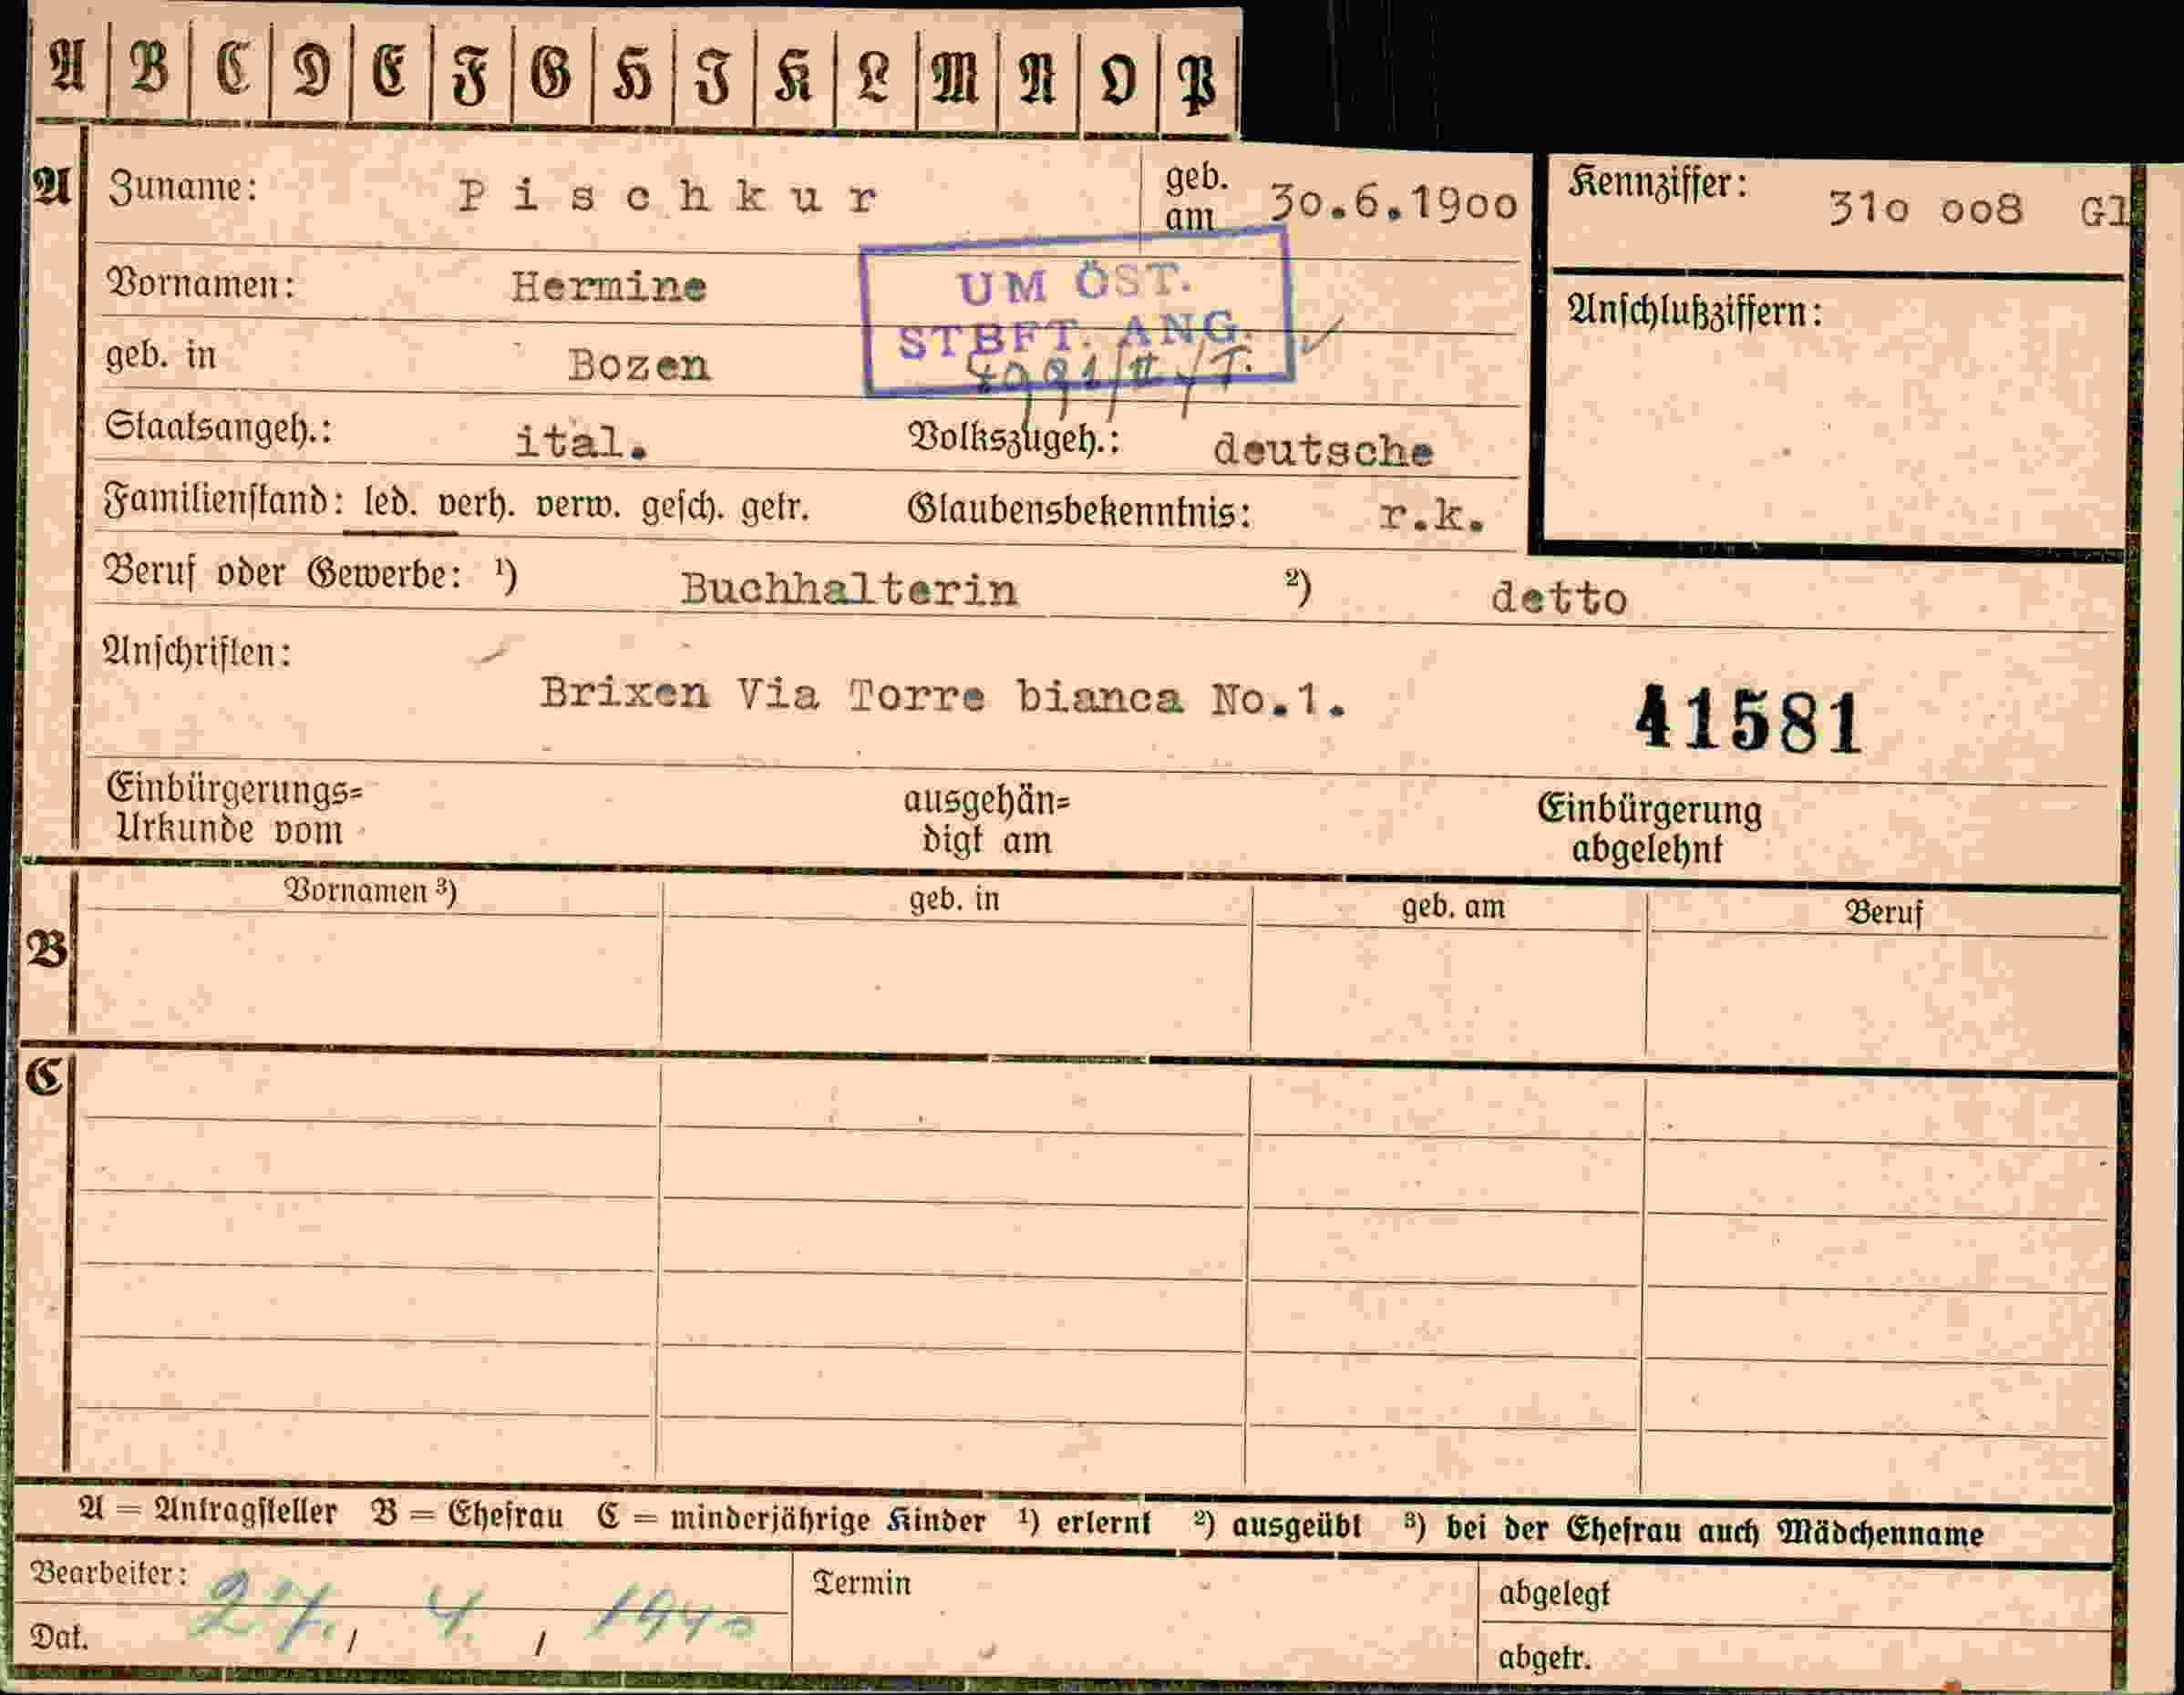 A B C D E F G H I K L M N O P
A Zuname: Pischkur geb. am 30.6.1900 Kennziffer: 310 008 Gl
Vornamen: Hermine UM ÖST. Anschlußziffern:
STBFT. ANG.
geb. in Bozen
Staatsangeh.: ital. Volkszugeh.: deutsche
Familienstand: led. verh. verw. gesch. getr. Glaubensbekenntnis: r.k.
Beruf oder Gewerbe: ¹) Buchhalterin ²) detto
Anschriften:
Brixen Via Torre bianca No.1. 41581
Einbürgerungs= ausgehän= Einbürgerung
Urkunde vom digt am abgelehnt
B Vornamen ³) geb. in geb. am Beruf
C
A = Antragsteller B = Ehefrau C = minderjährige Kinder ¹) erlernt ²) ausgeübt ³) bei der Ehefrau auch Mädchenname
Bearbeiter: Termin abgelegt
Dat. 27. / 4. / 1940 abgetr.